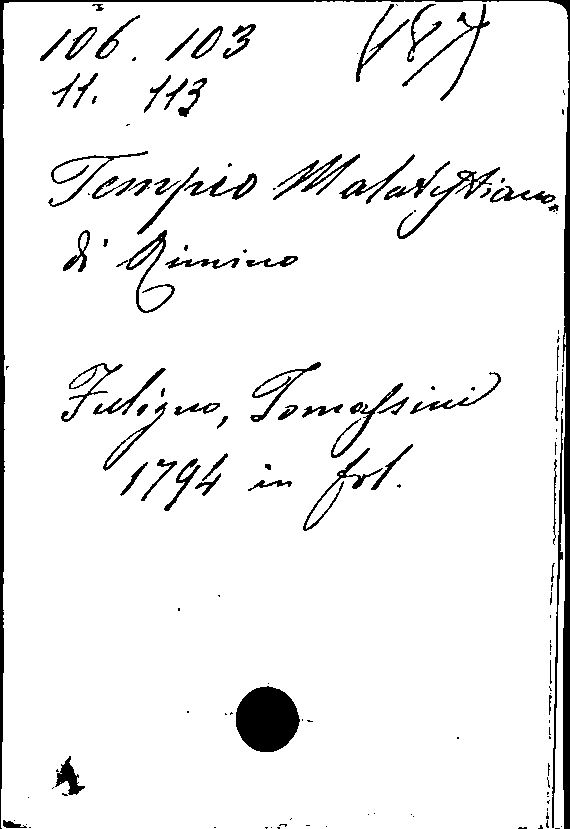 106. 103
11. 113
Tempio Malatestiano
di Rimino
Fuligno, Tomassini
1794 in fol.